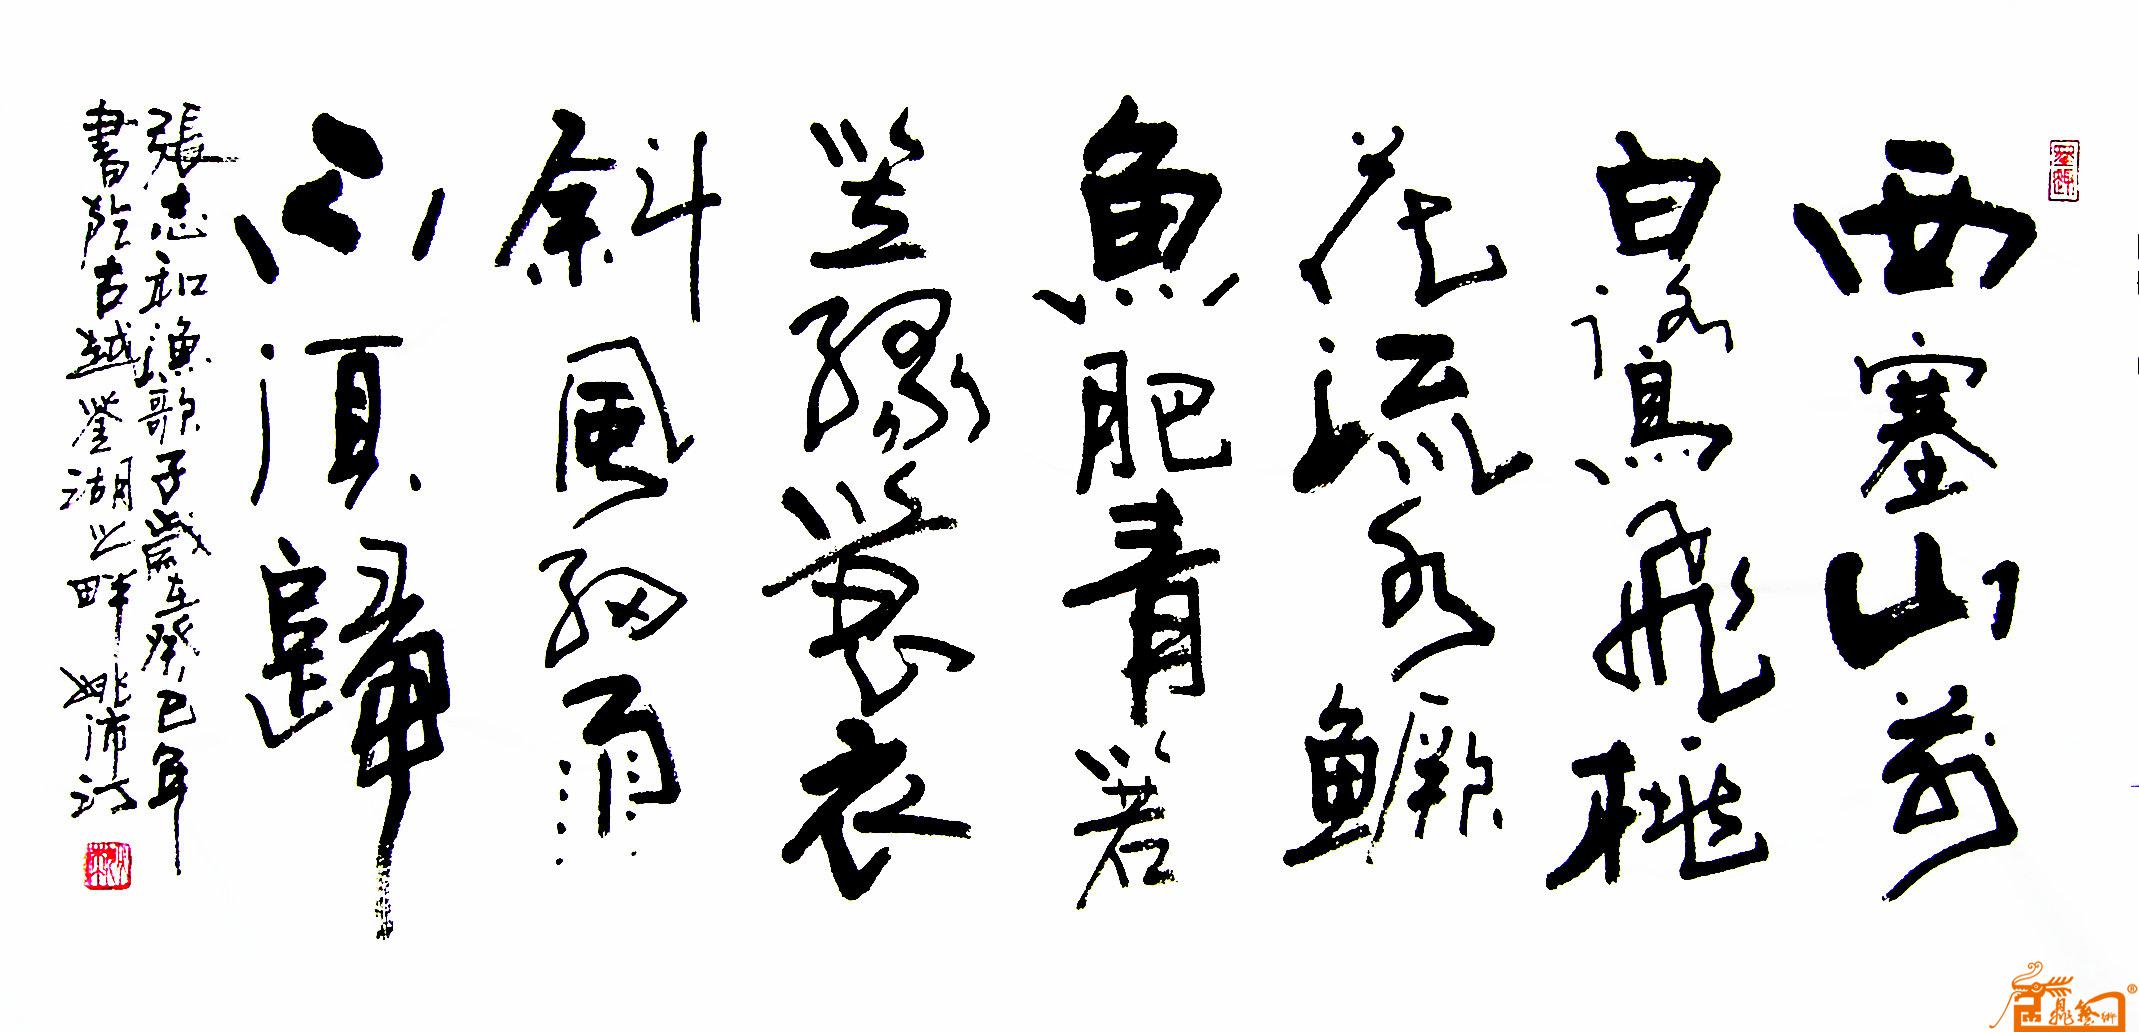 西塞山前
白鷺飛桃
花流水鱖
魚肥青箬
笠緑蓑衣
斜風細雨
不須歸
張志和漁歌子歲在癸巳年
書於古越鉴湖之畔 姚沛